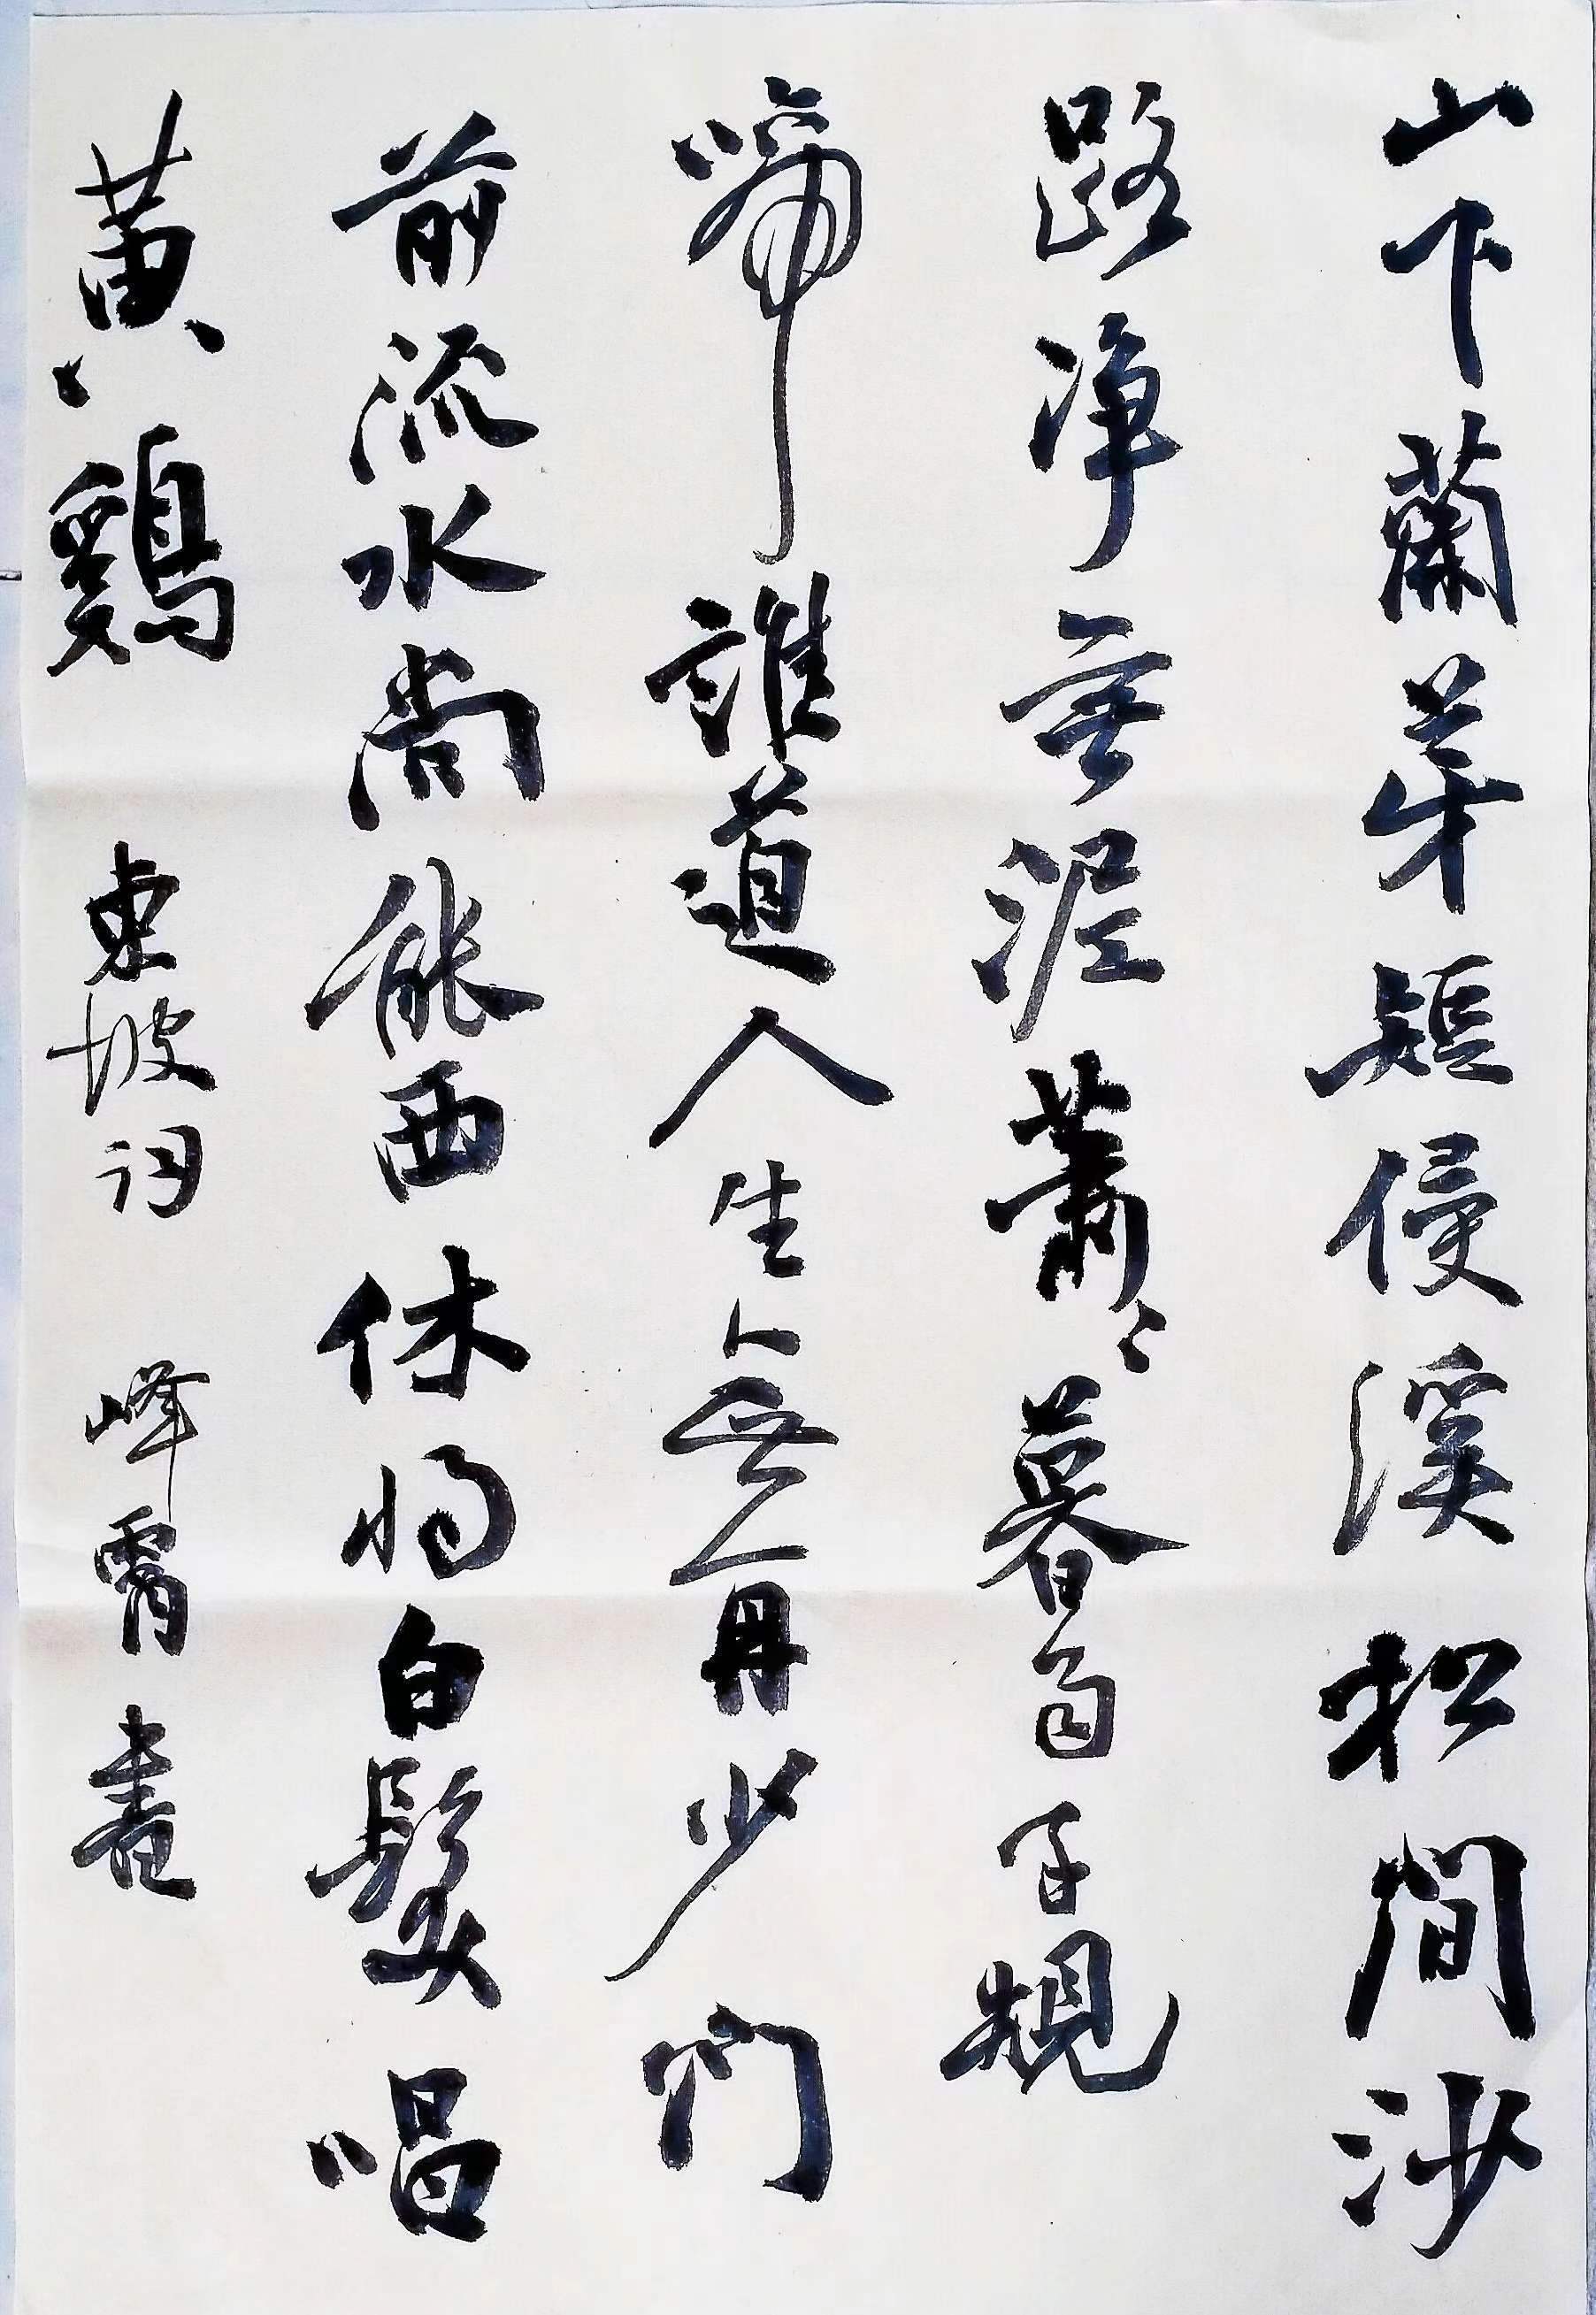 山下蘭芽短侵溪松間沙
路净無泥蕭〻暮雨子規
啼誰道人生無再少門
前流水尚能西休將白髮唱
黃鷄 東坡詞 峰霄書